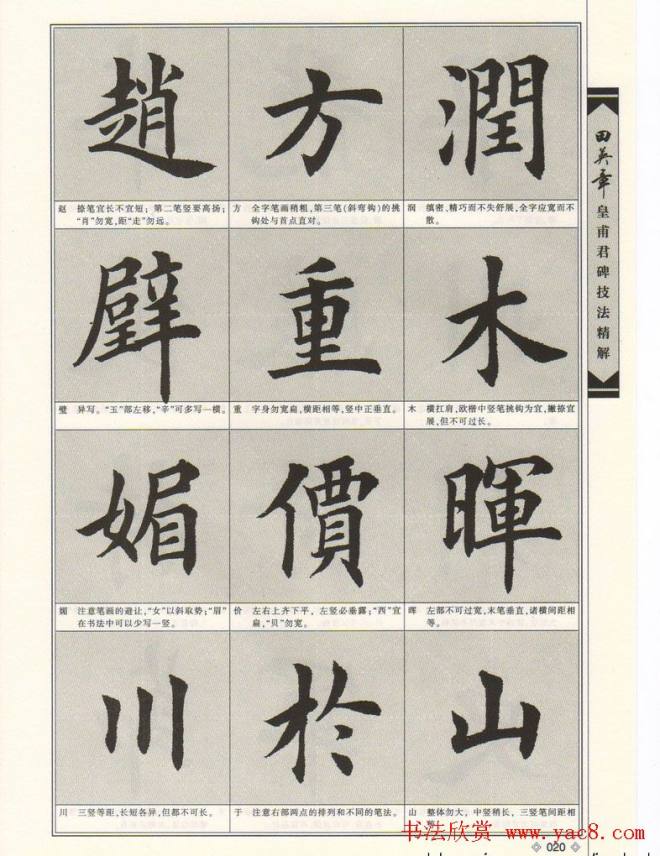 趙
方
潤
赵 捺笔宜长不宜短；第二笔竖要高扬；
“肖”勿宽，距“走”勿远。
方 全字笔画稍粗，第三笔(斜弯钩)的挑
钩处与首点直对。
润 缜密、精巧而不失舒展，全字应宽而不
散。
璧
重
木
璧 异写。“玉”部左移，“辛”可多写一横。
重 字身勿宽扁，横距相等，竖中正垂直。
木 横扛肩，欧楷中竖笔挑钩为宜，撇捺宜
展，但不可过长。
媚
價
暉
媚 注意笔画的避让，“女”以斜取势；“眉”
在书法中可以少写一竖。
价 左右上齐下平，左竖必垂露；“西”宜
扁，“贝”勿宽。
晖 左部不可过宽，末笔垂直，诸横间距相
等。
川
於
山
川 三竖等距，长短各异，但都不可长。
于 注意右部两点的排列和不同的笔法。
山 整体勿大，中竖稍长，三竖笔间距相
田英章
皇甫君碑技法精解
书法欣赏 www.yac8.com
020